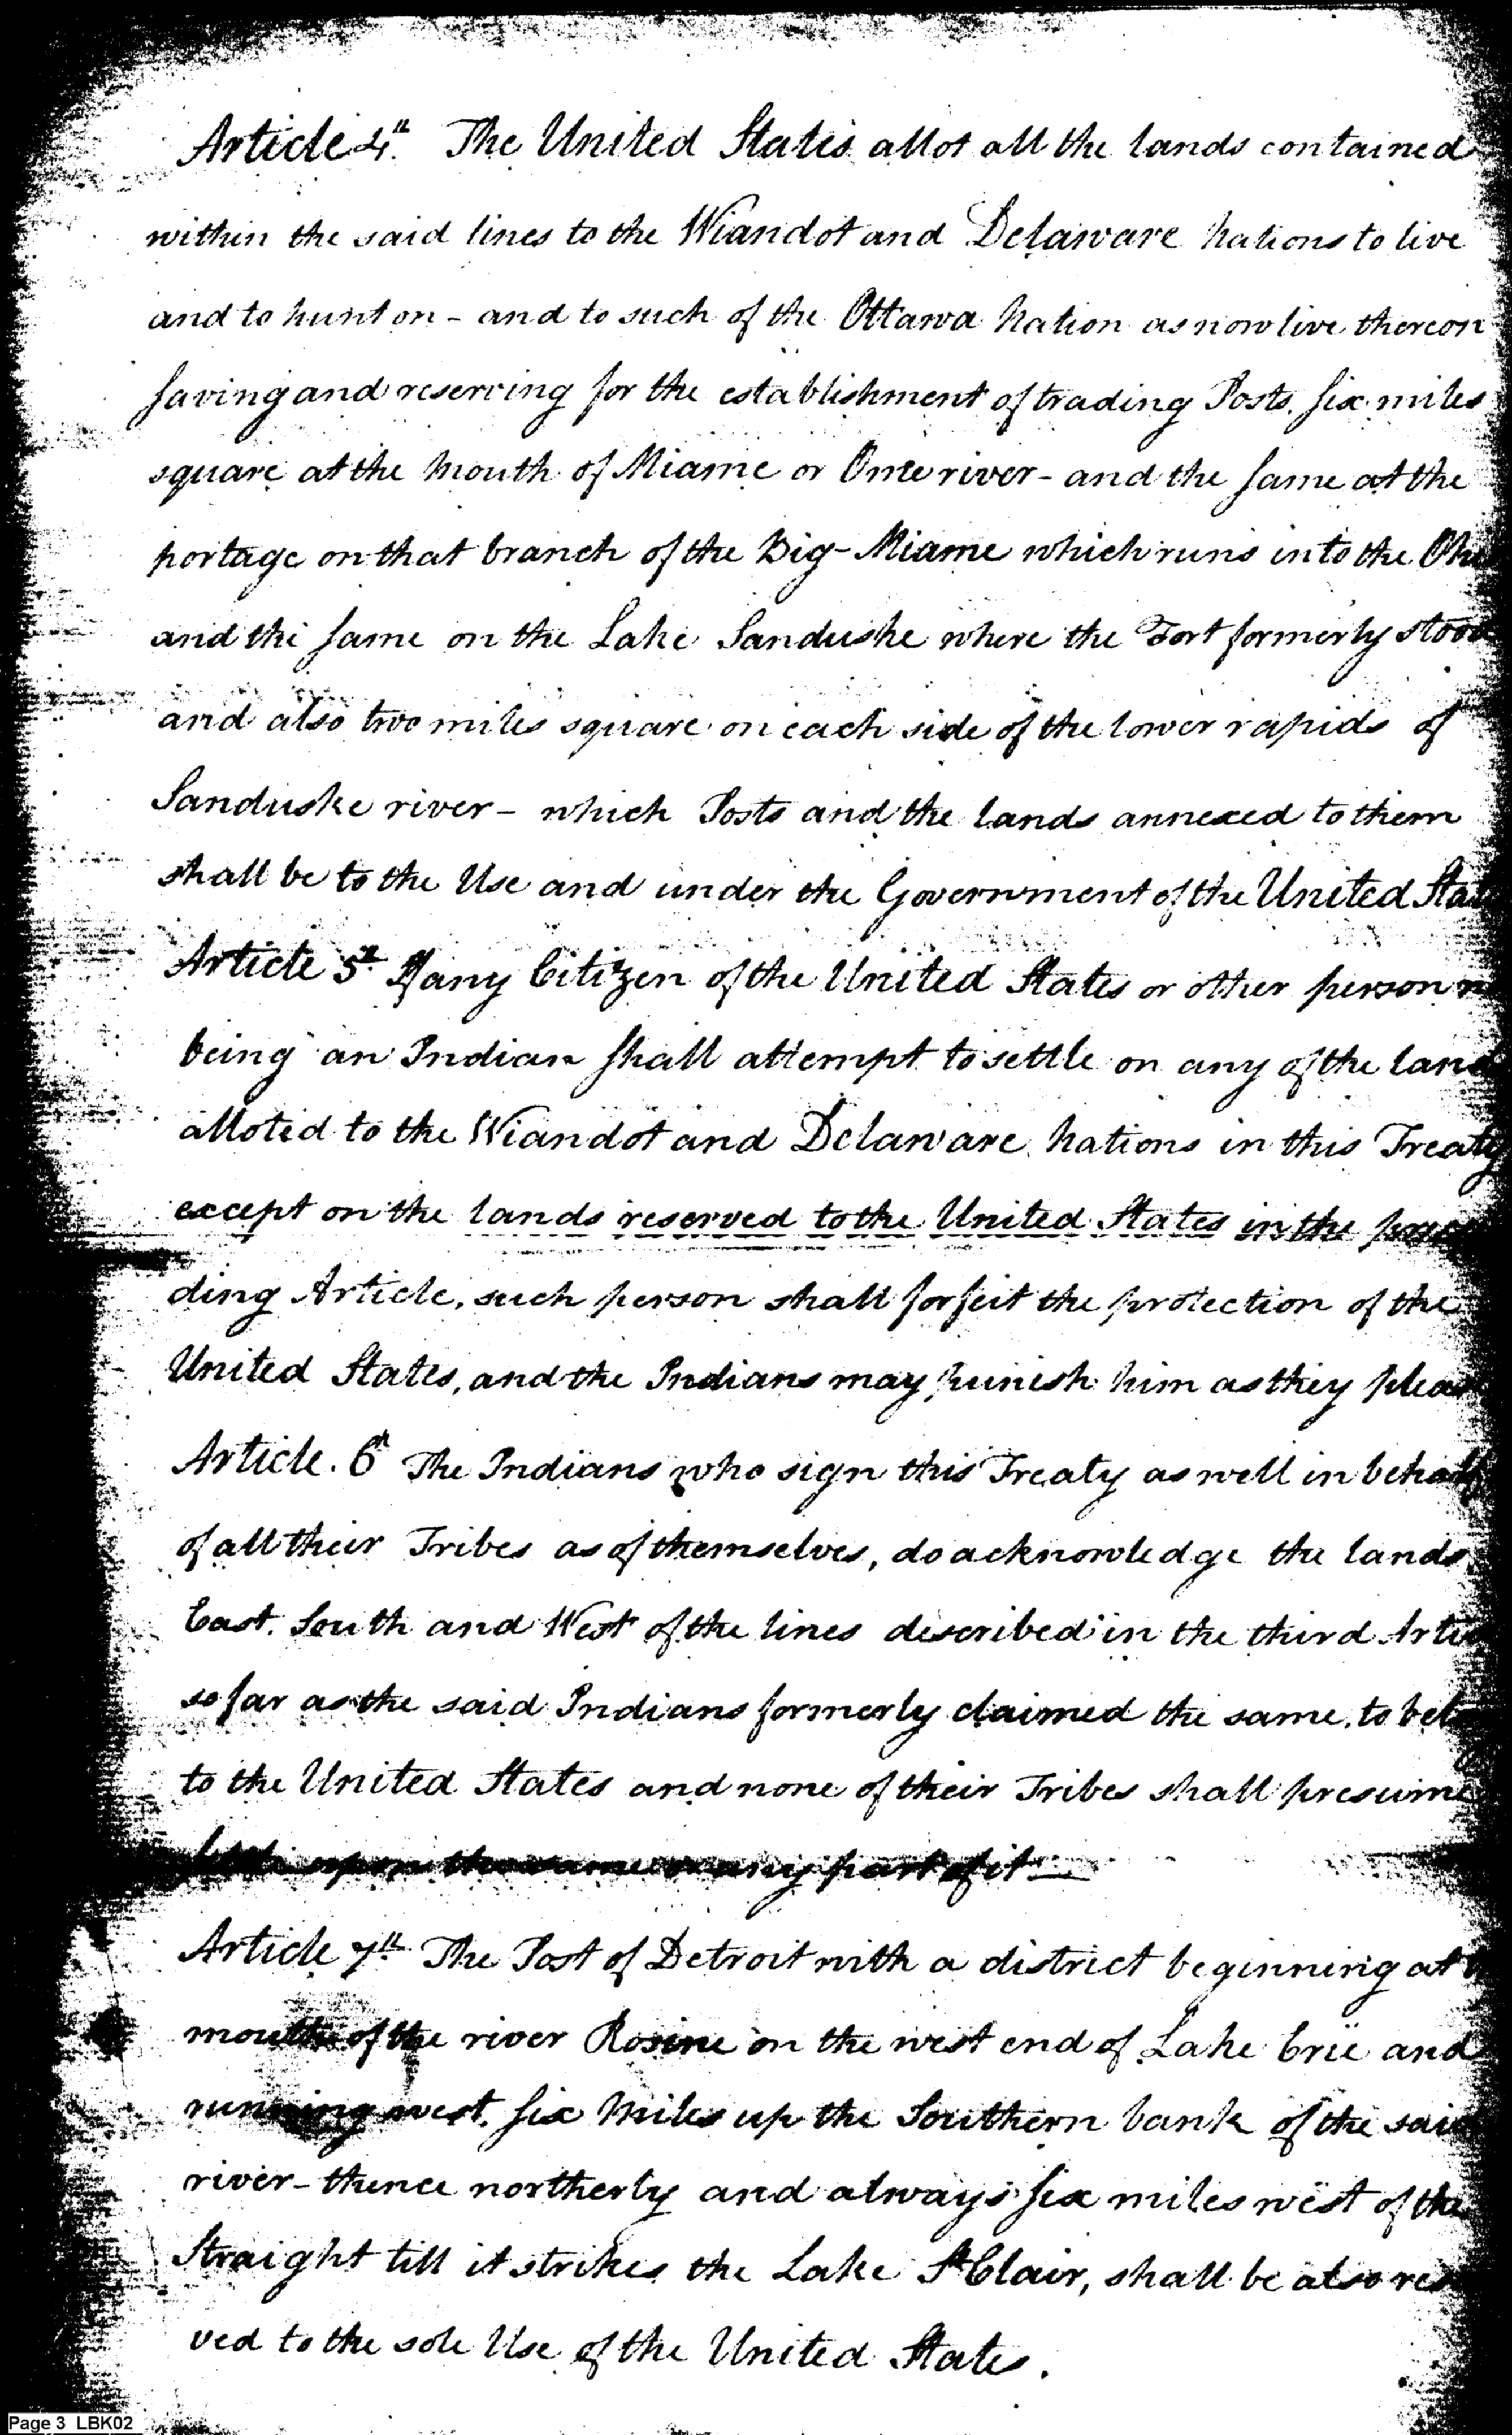 Article 4th. The United States allot all the lands contained
within the said lines to the Wiandot and Delaware Nations to live
and to hunt on - and to such of the Ottawa Nation as now live thereon
saving and reserving for the establishment of trading Posts, six miles
square at the mouth of Miame or Ome river - and the same at the
portage on that branch of the Big-Miame which runs into the
and the same on the Lake Sanduske where the Fort formerly stood
and also two miles square on each side of the lower rapids of
Sanduske river - which Posts and the lands annexed to them
shall be to the Use and under the Government of the United
Article 5th. If any Citizen of the United States or other person
being an Indian shall attempt to settle on any of the
alloted to the Wiandot and Delaware Nations in this Treaty
except on the lands reserved to the United States in the
ding Article, such person shall forfeit the protection of the
United States, and the Indians may punish him as they
Article. 6th The Indians who sign this Treaty as well in behalf
of all their Tribes as of themselves, do acknowledge the lands
East. South and West of the lines described in the third
so far as the said Indians formerly claimed the same, to
to the United States and none of their Tribes shall presume
upon the same or any part of it
Article 7th The Post of Detroit with a district beginning at
mouth of the river Rosine on the west end of Lake Erie and
running west, six Miles up the Southern bank of the said
river - thence northerly and always six miles west of the
Straight till it strikes the Lake St Clair, shall be also
ved to the sole Use of the United States.
Page 3 LBK02